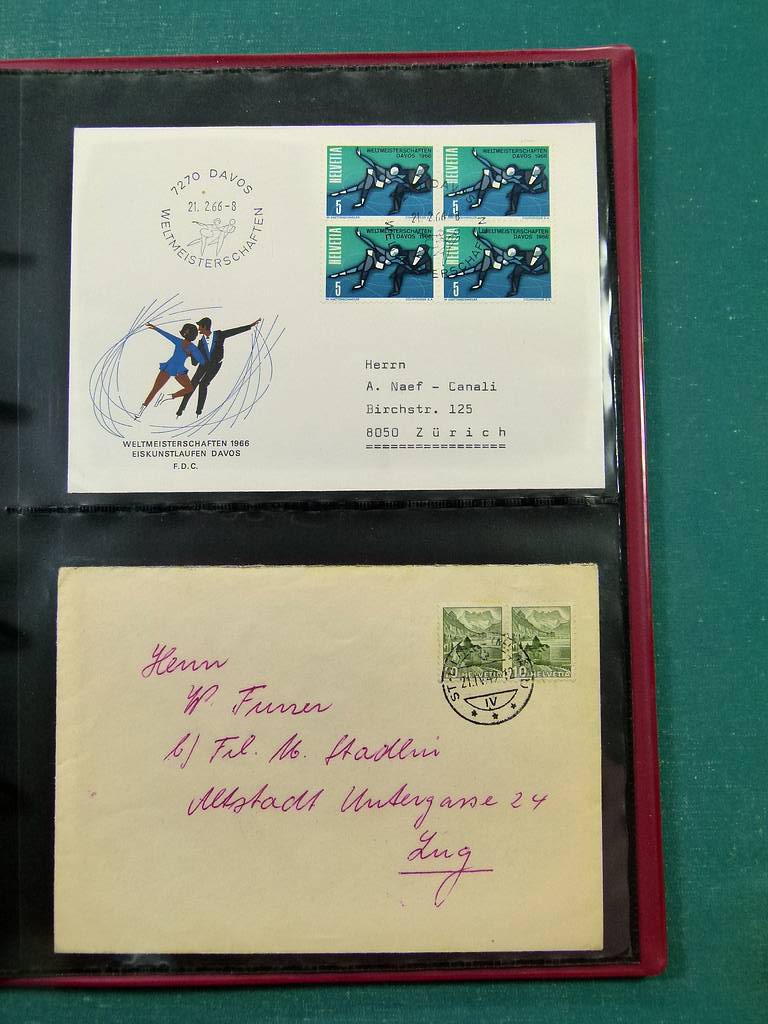 7270 DAVOS
21.2.66-8
WELTMEISTERSCHAFTEN
HELVETIA
WELTMEISTERSCHAFTEN
DAVOS 1966
5
HELVETIA
WELTMEISTERSCHAFTEN
DAVOS 1966
5
HELVETIA
WELTMEISTERSCHAFTEN
DAVOS 1966
5
HELVETIA
WELTMEISTERSCHAFTEN
DAVOS 1966
5
21.2.66-8
WELTMEISTERSCHAFTEN 1966
EISKUNSTLAUFEN DAVOS
F.D.C.
Herrn
A. Naef - Canali
Birchstr. 125
8050 Zürich
HELVETIA
HELVETIA
IV
Herrn
W. Furrer
b/ Frl. M. Stadlin
Altstadt Untergasse 24
Zug